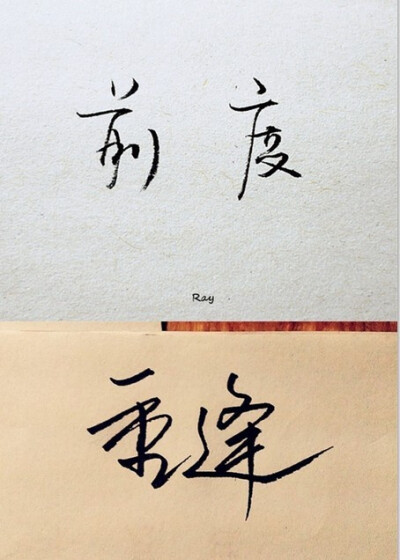 前 度
Ray
重逢